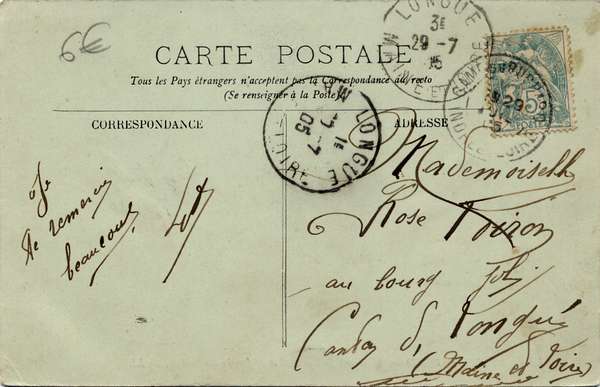 6€
CARTE POSTALE
Tous les Pays étrangers n'acceptent pas la Correspondance au recto
(Se renseigner à la Poste)
CORRESPONDANCE
ADRESSE
LONGUE
3E
29 -7
15
LONGUE
1E
-7
05
Je
te remercie
beaucoup
Mademoiselle
Rose Voiron
au bourg
Canton d, Longué
(Maine et Loire)